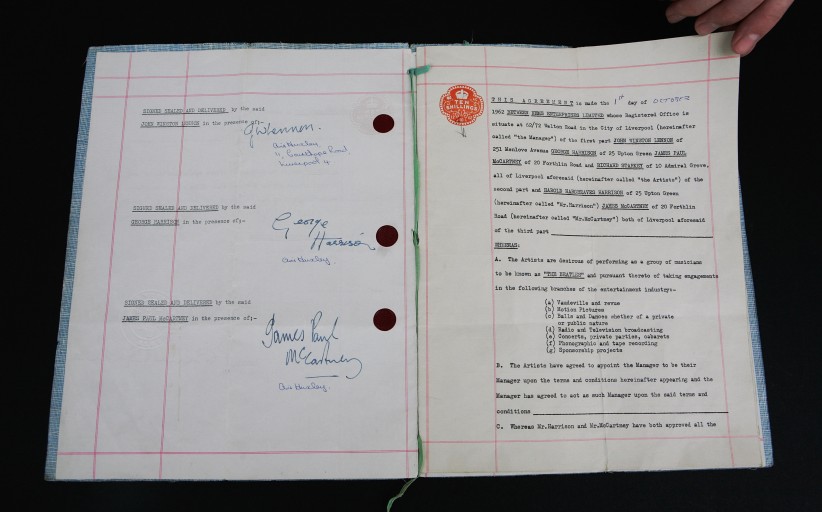 SIGNED SEALED AND DELIVERED by the said
JOHN WINSTON LENNON in the presence of:-
JWLennon.
Liverpool 4
SIGNED SEALED AND DELIVERED by the said
GEORGE HARRISON in the presence of:-
George
Harrison
SIGNED SEALED AND DELIVERED by the said
JAMES PAUL MCCARTNEY in the presence of:-
James Paul
McCartney
TEN
SHILLINGS
THIS AGREEMENT is made the 1st day of OCTOBER
1962 BETWEEN NEMS ENTERPRISES LIMITED whose Registered Office is
situate at 62/72 Walton Road in the City of Liverpool (hereinafter
called "the Manager") of the first part JOHN WINSTON LENNON of
251 Menlove Avenue GEORGE HARRISON of 25 Upton Green JAMES PAUL
McCARTNEY of 20 Forthlin Road and RICHARD STARKEY of 10 Admiral Grove,
all of Liverpool aforesaid (hereinafter called "the Artists") of the
second part and HAROLD HARGREAVES HARRISON of 25 Upton Green
(hereinafter called "Mr.Harrison") JAMES McCARTNEY of 20 Forthlin
Road (hereinafter called "Mr.McCartney") both of Liverpool aforesaid
of the third part
WHEREAS:
A. The Artists are desirous of performing as a group of musicians
to be known as "THE BEATLES" and pursuant thereto of taking engagements
in the following branches of the entertainment industry:-
(a) Vaudeville and revue
(b) Motion Pictures
(c) Balls and Dances whether of a private
or public nature
(d) Radio and Television broadcasting
(e) Concerts, private parties, cabarets
(f) Phonographic and tape recording
(g) Sponsorship projects
B. The Artists have agreed to appoint the Manager to be their
Manager upon the terms and conditions hereinafter appearing and the
Manager has agreed to act as such Manager upon the said terms and
conditions
C. Whereas Mr.Harrison and Mr.McCartney have both approved all the